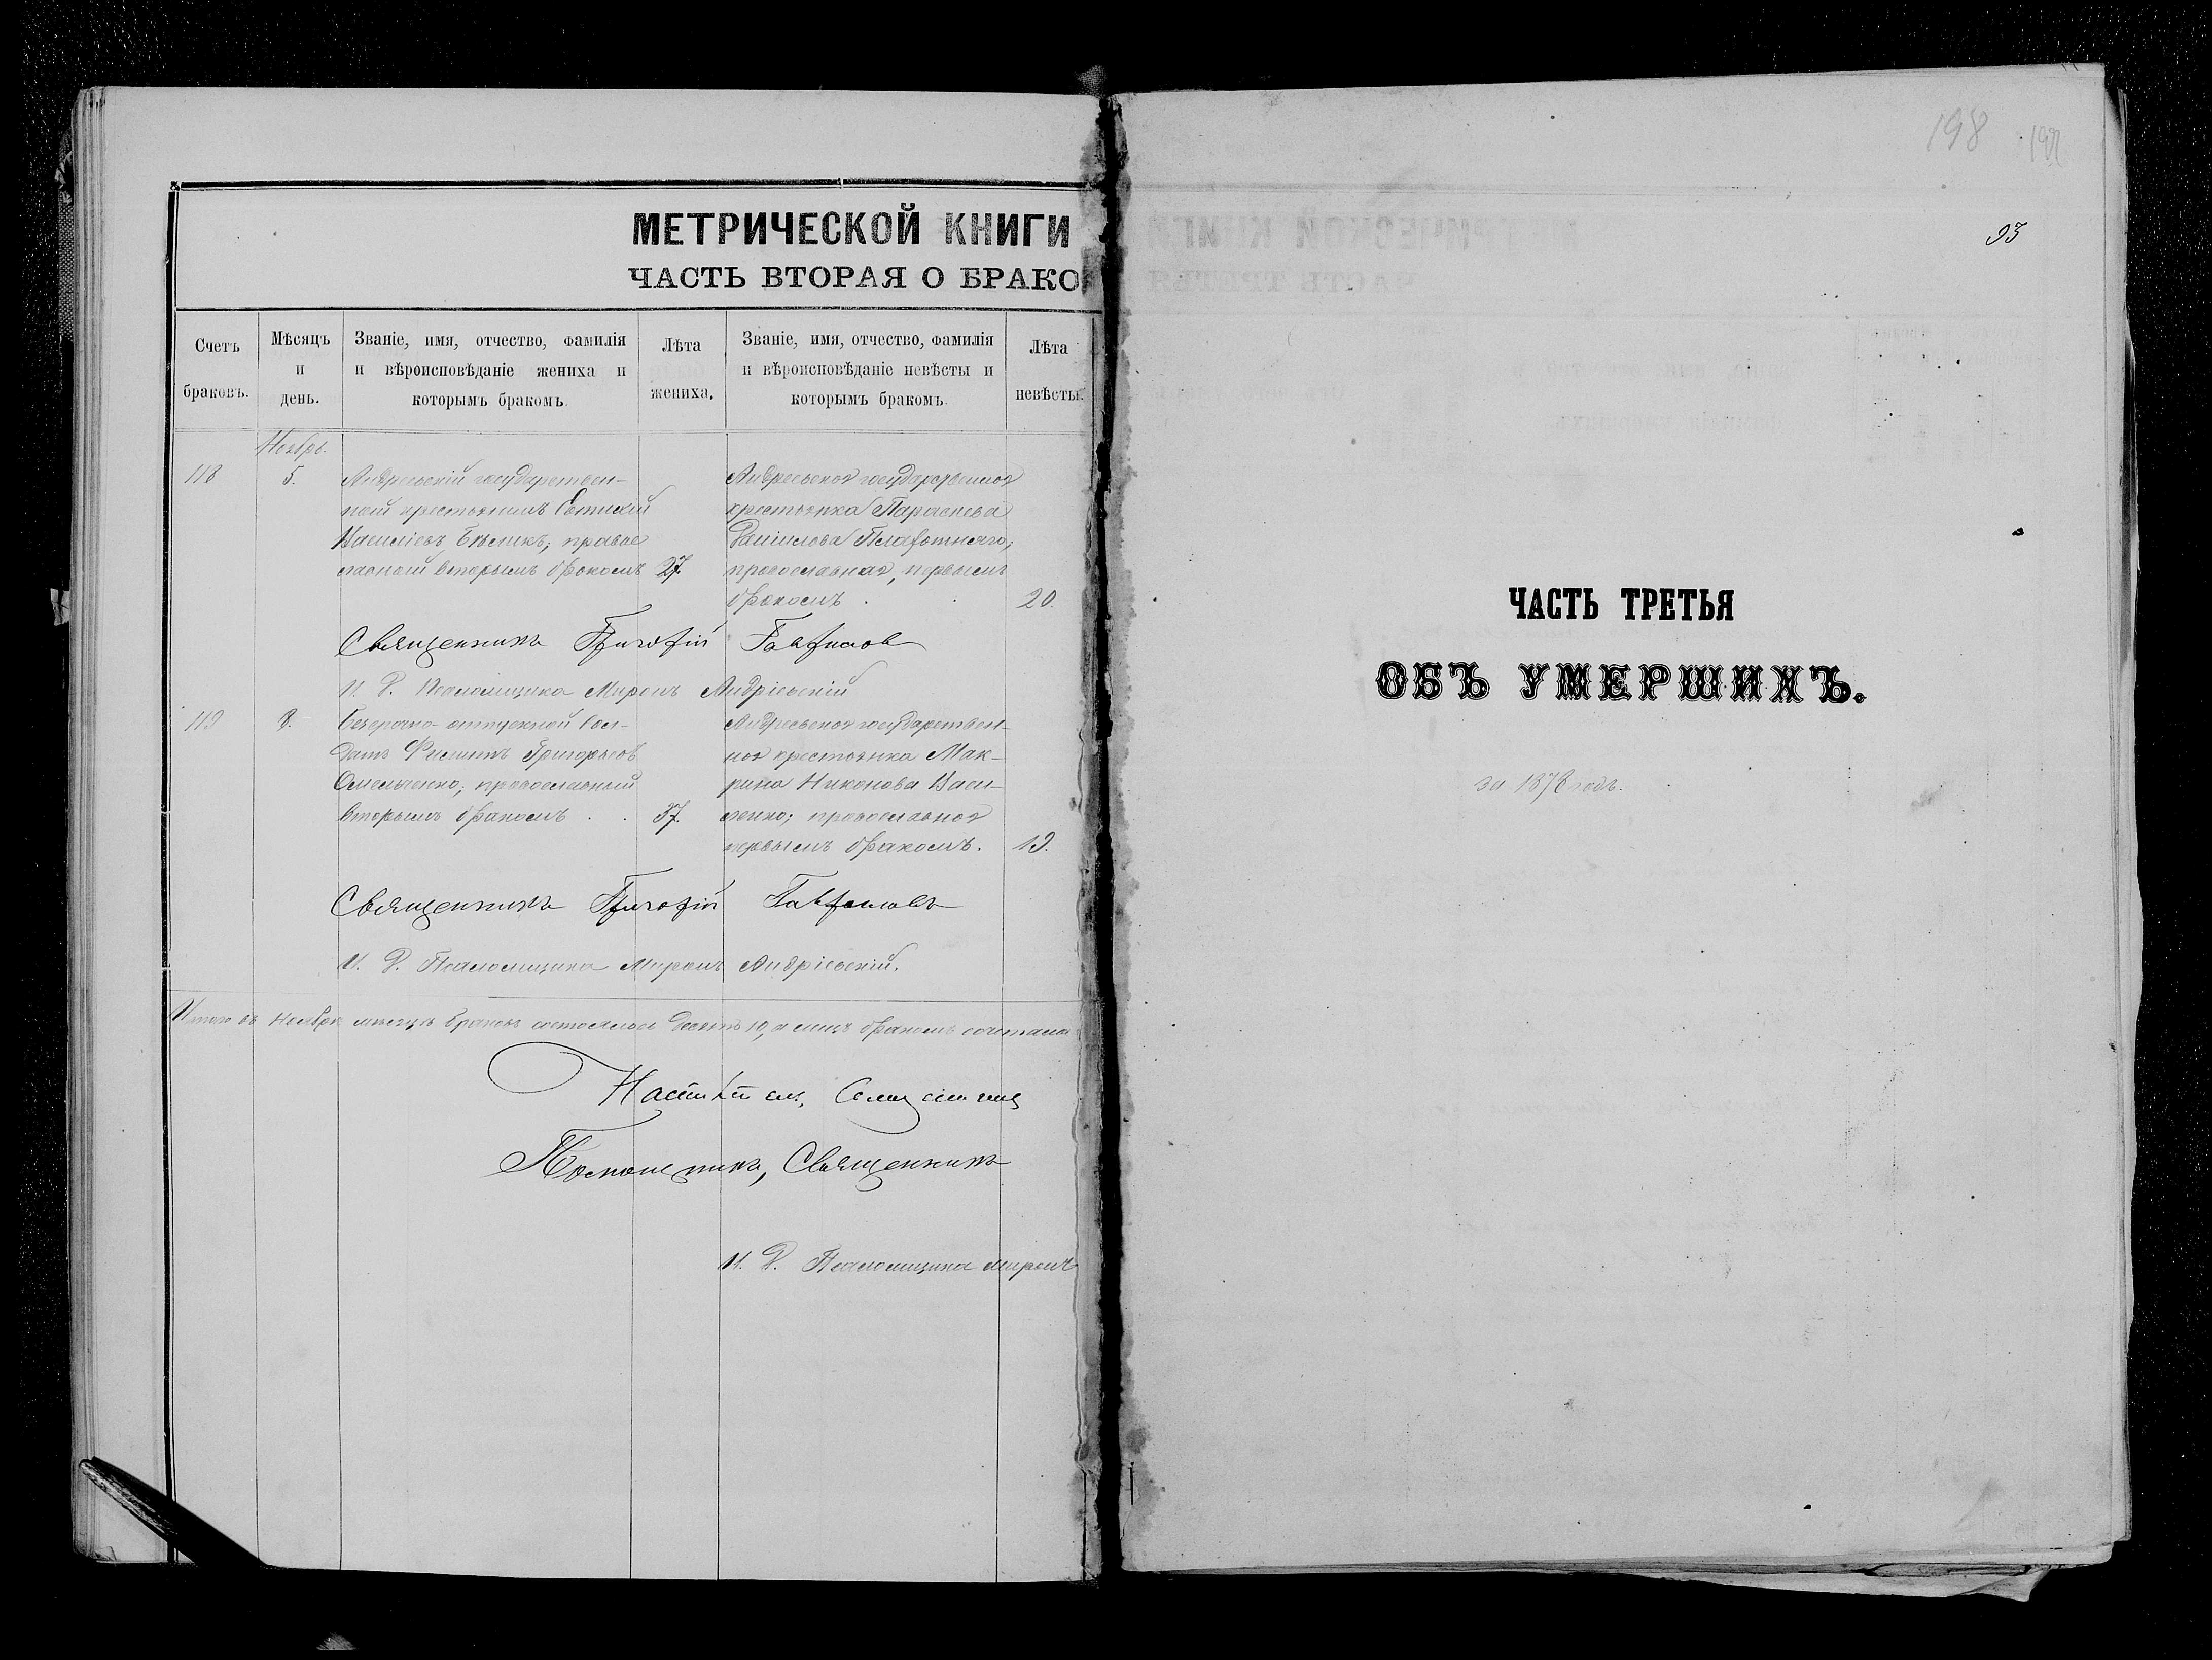 МЕТРИЧЕСКОЙ КНИГИ
ЧАСТЬ ВТОРАЯ О БРАКО
Счетъ браковъ.
Мѣсяцъ и день.
Званіе, имя, отчество, фамилія и вѣроисповѣданіе жениха и которымъ бракомъ.
Лѣта жениха.
Званіе, имя, отчество, фамилія и вѣроисповѣданіе невѣсты и которымъ бракомъ.
Лѣта невѣсты.
Ноябрь.
118
5.
Андреевскій государствен-
ный крестьянинъ
Василіевъ православ
славный вторымъ бракомъ
27.
Андреевская государственная
крестьянка Параскева
Данилова
православная, первымъ
бракомъ
20.
Священникъ Григорій Гаврилов
И. Д. Псаломщика Миронъ Андріевскій
119
8.
Безсрочно-отпускной сол-
датъ Филиппъ Григорьевъ
Омельченко; православный
вторымъ бракомъ
37.
Андреевская государствен-
ная крестьянка Мак-
рина Никонова Васи-
ленко; православная
первымъ бракомъ.
19.
Священникъ Григорій Гавриловъ
И. Д. Псаломщика Миронъ Андріевскій.
Итого въ Ноябрѣ мѣсяцѣ браковъ состоялось десять 10, а лицъ бракомъ сочетано
Помощникъ, Священникъ
И. Д. Псаломщика Миронъ
198
93
ЧАСТЬ ТРЕТЬЯ
ОБЪ УМЕРШИХЪ.
за 1878 годъ.